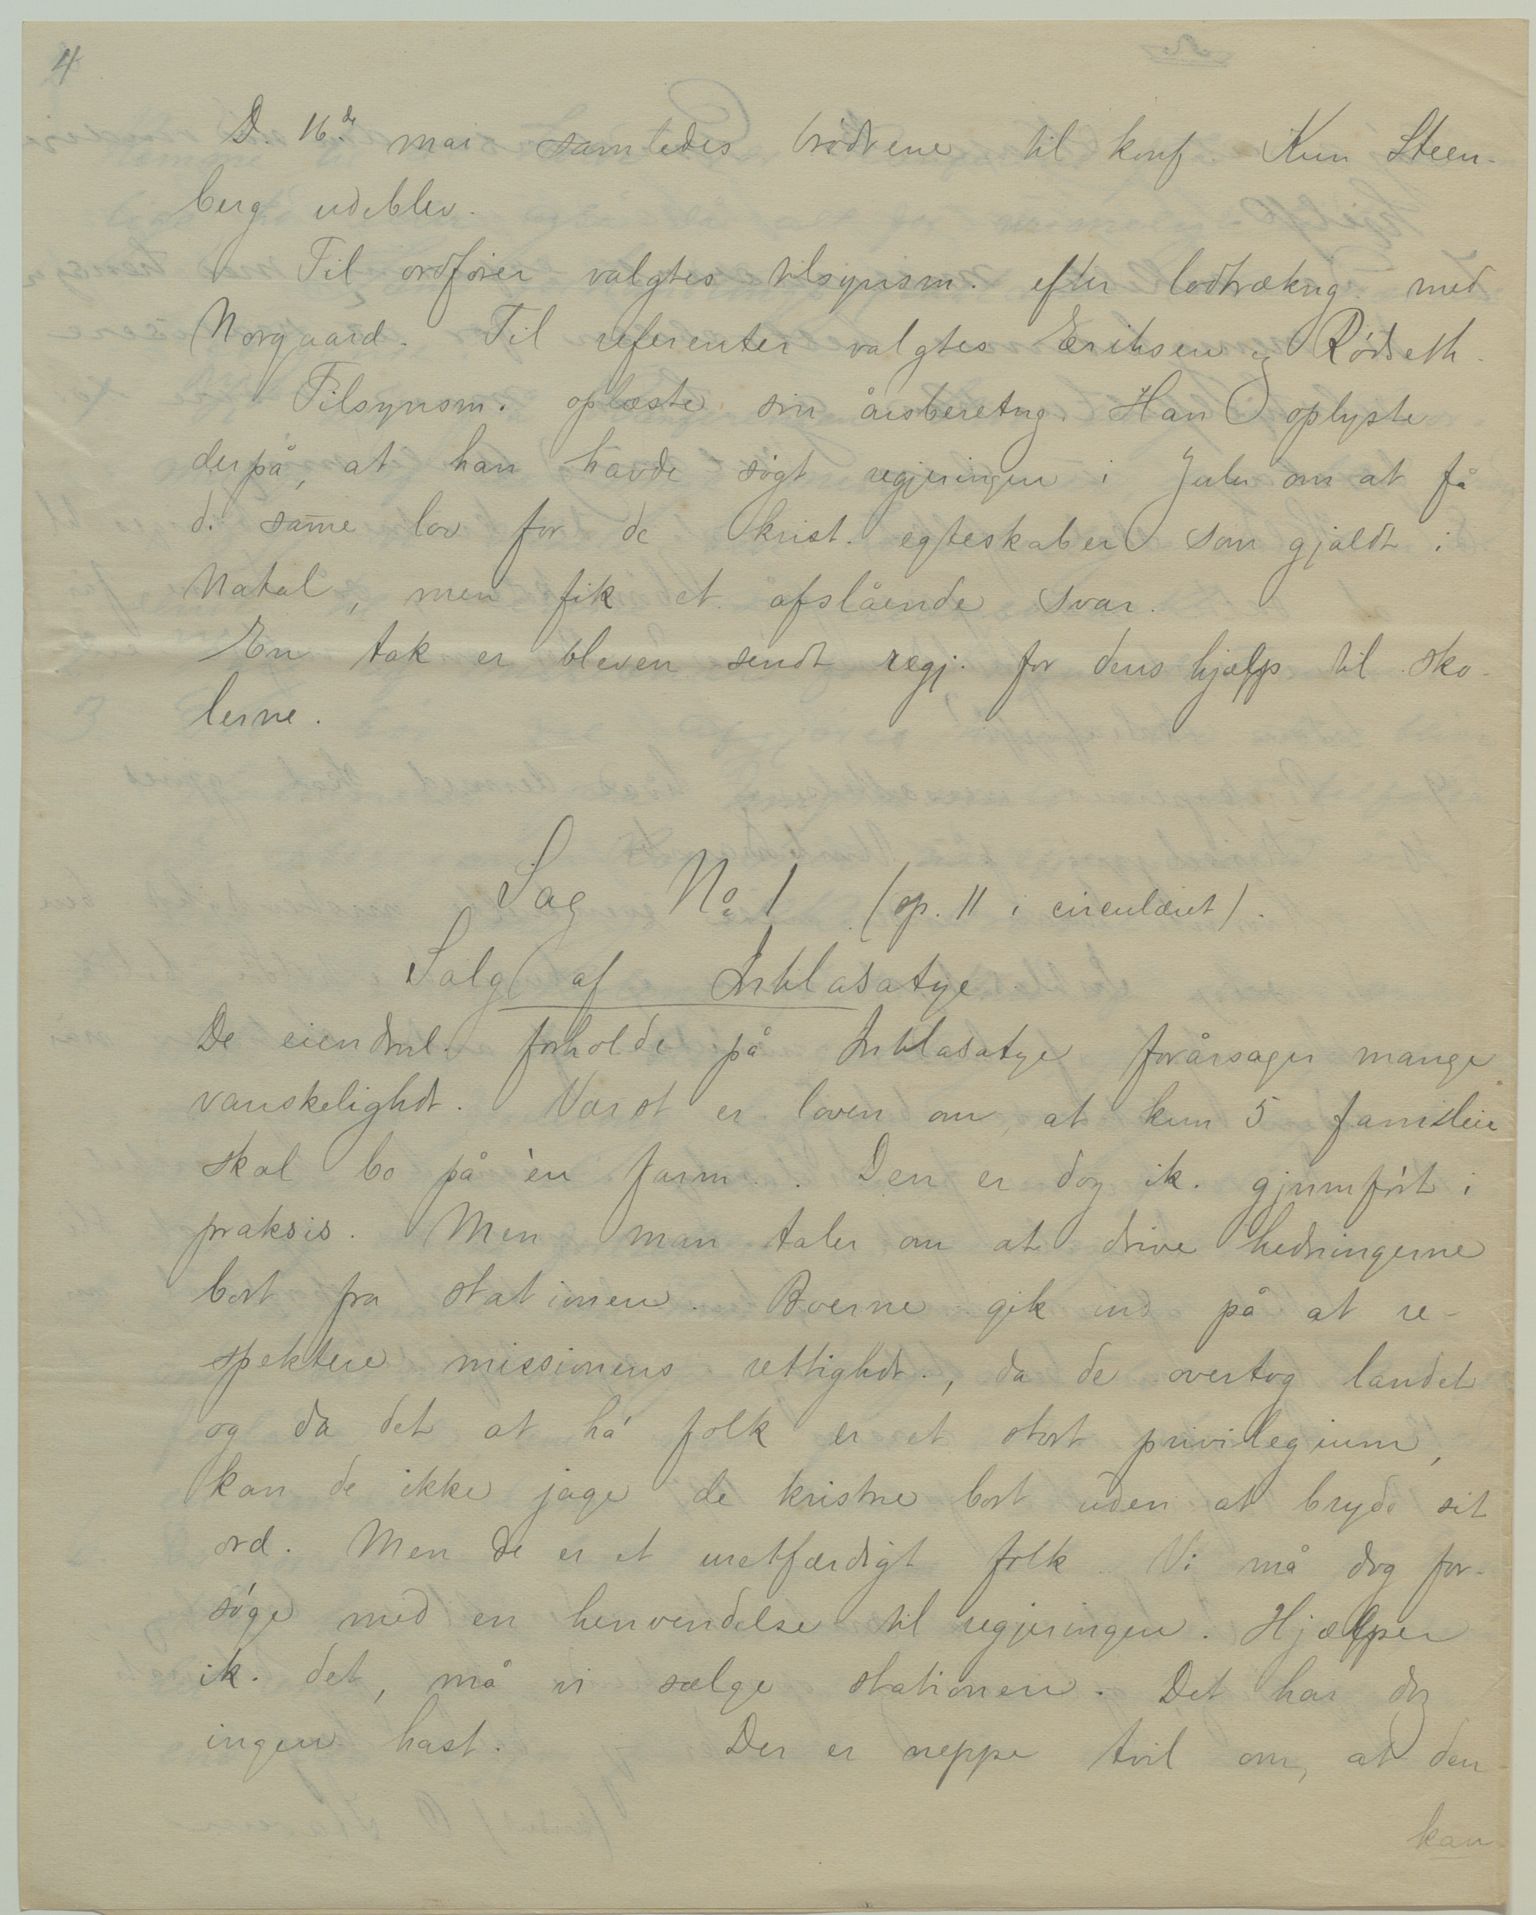 4
D. 16de mai samledes brødrene til konf. Kun Steen-
berg udeblev.
Til ordfører valgtes tilsynsm. efter lodtrækng med
Norgaard. Til referenter valgtes Eriksen og Rødseth.
Tilsynsm. oplæste sin årsberetng. Han oplyste
derpå, at han havde søgt regjeringen i Julu om at få
d. samme lov for de krist. egteskaber som gjaldt i
Natal, men fik et afslående svar.
En tak er bleven sendt regj. for dens hjælp til sko-
lerne.
Sag No 1 (op. 11 i circulæret).
Salg af Inhlasatye.
De eiendml. forholde på Inhlasatye forårsager mange
vanskelighdr. Værst er loven om, at kun 5 familier
skal bo på èn farm. Den er dog ik. gjnmført i
praksis. Men man taler om at drive hedningerne
bort fra stationen. Boerne gik ind på at re-
spektere missionens rettighdr., da de overtog landet
og da det at há folk er et stort privilegium,
kan de ikke jage de kristne bort uden at bryde sit
ord. Men de er et uretfærdigt folk. Vi må dog for-
søge med en henvendelse til regjeringen. Hjælper
ik. det, må vi sælge stationen. Det har dog
ingen hast. Der er neppe tvil om, at den
kan